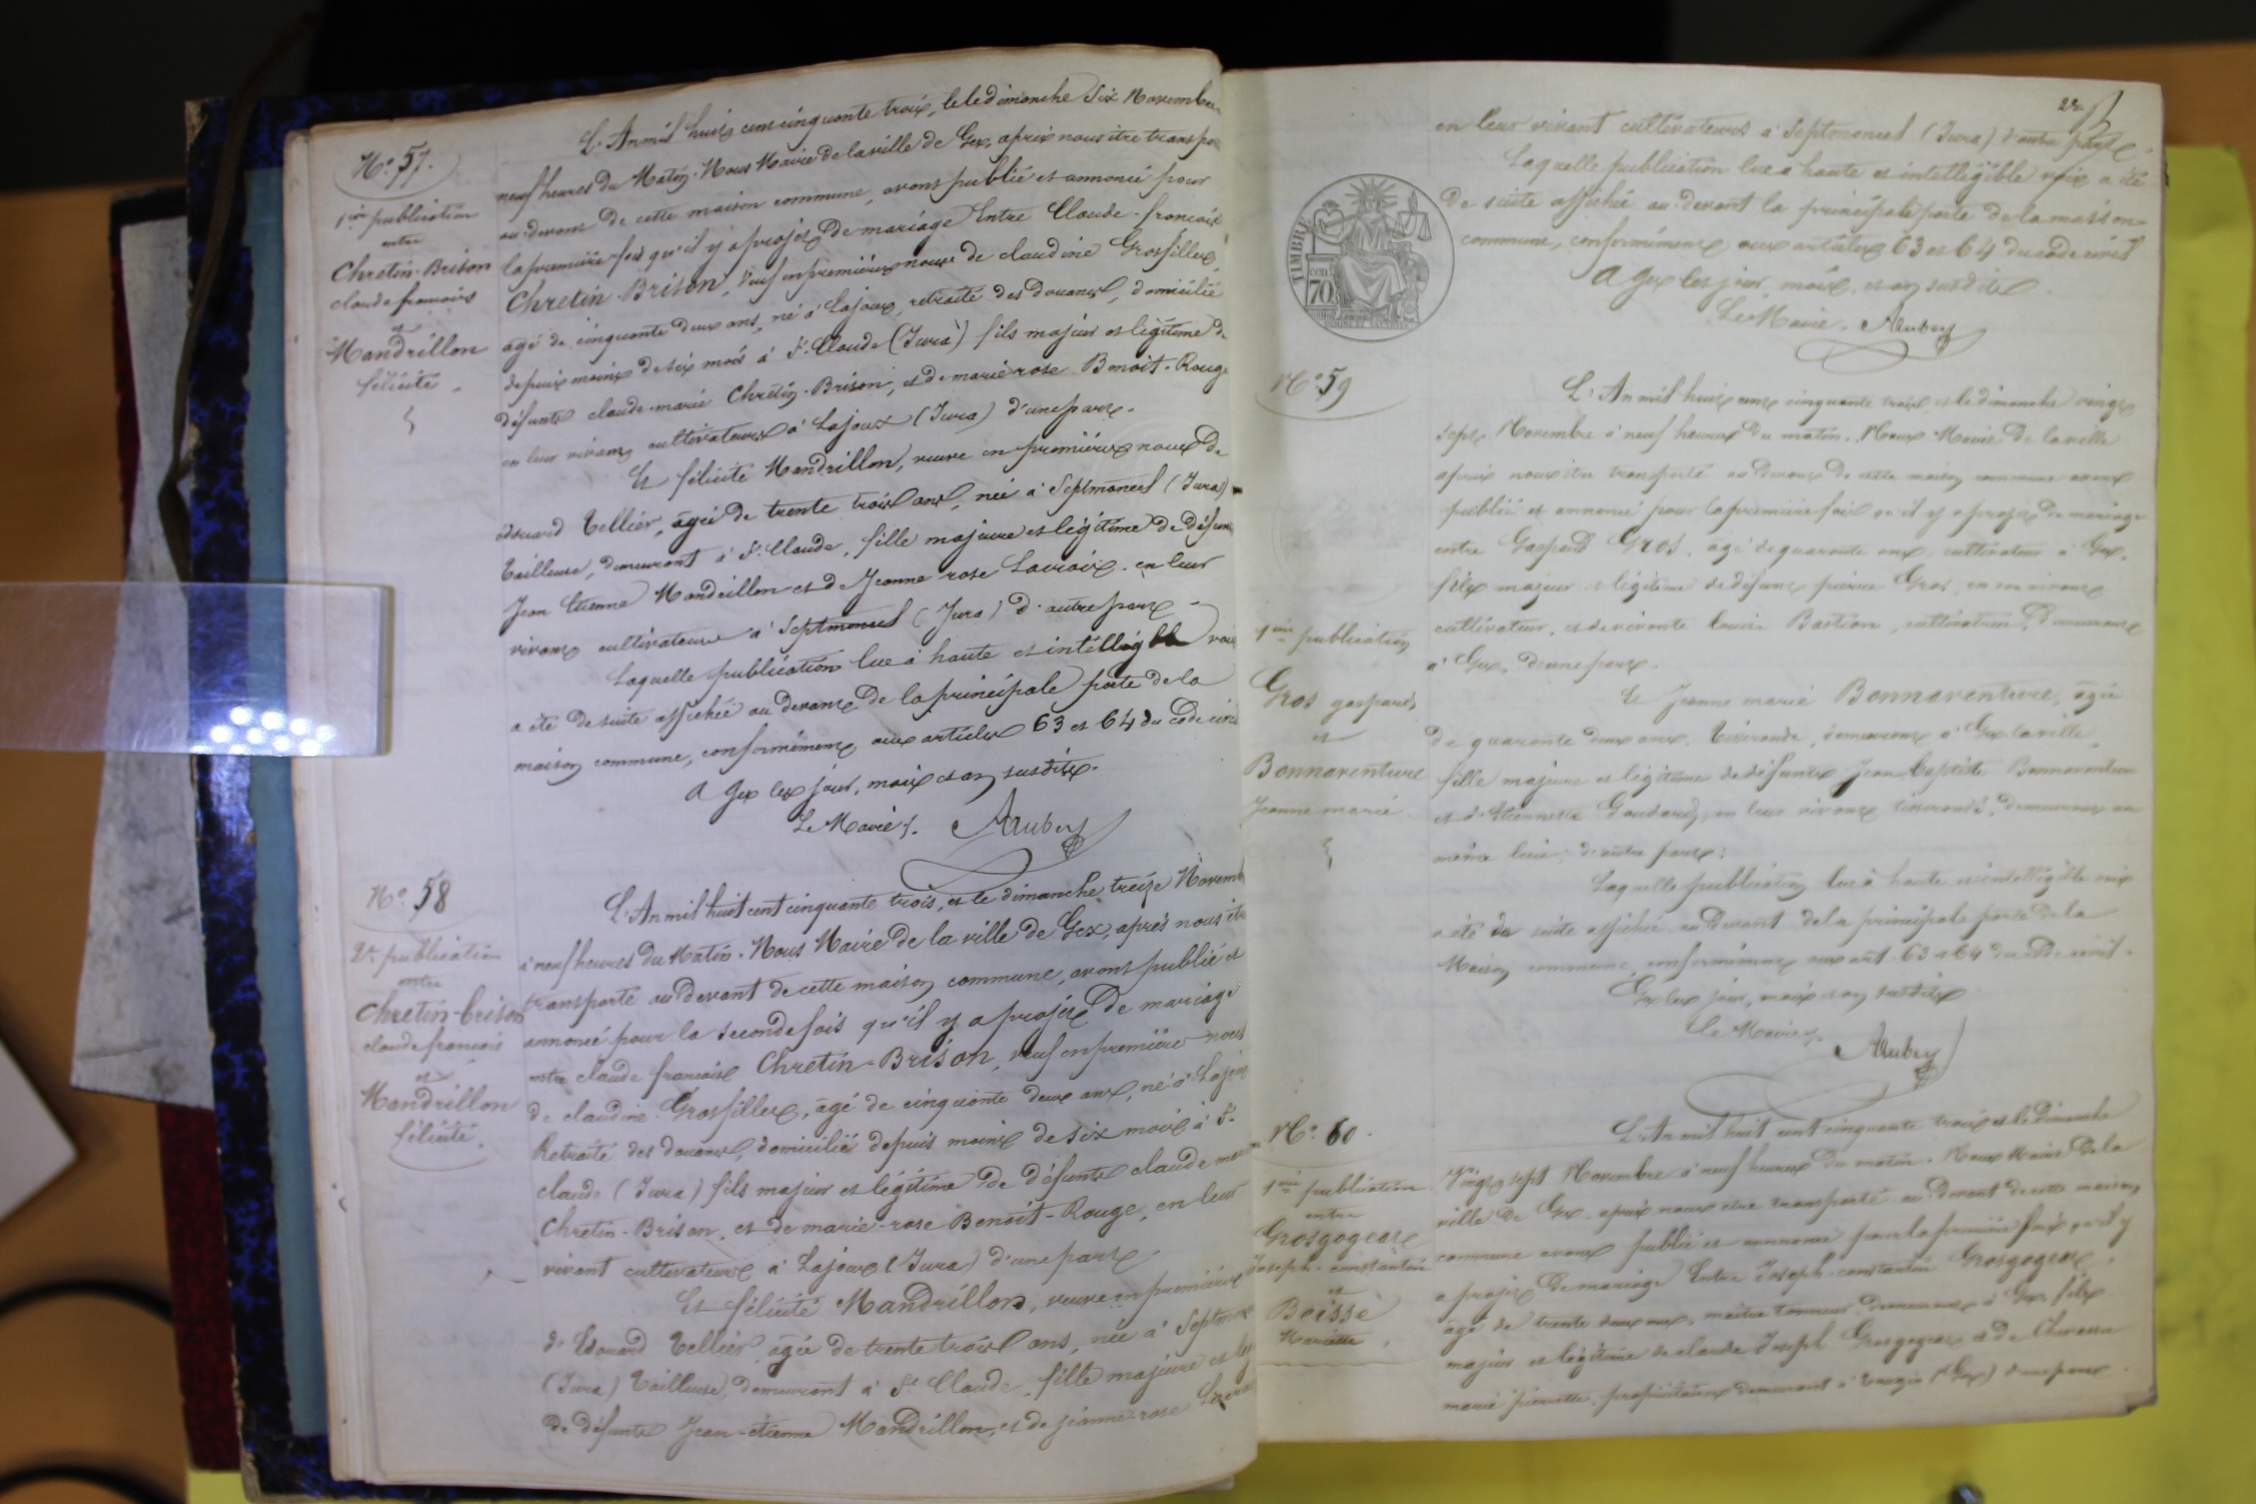 N.° 57.
1ère publication
entre
Chretin-Brison
claude françois
et
Mandrillon
félicité.
L'An mil huit cent cinquante trois, le dimanche Six Novembre
neuf heures du Matin. Nous Maire de la ville de Gex, après nous être transpor
au devant de cette maison commune, avons publié et annoncé pour
la première fois qu'il y a projet de mariage Entre Claude-françois
Chretin Brison, Veuf en premières noces de claudine Grosfillex,
agé de cinquante deux ans, né à Lajoux, retraité des douanes, domicilié
depuis moins de six mois à St. Claude (Jura) fils majeur et légitime de
défunts claude-marie Chretin-Brison, et de marie rose Benoit-Rouge
en leur vivant cultivateurs à Lajoux (Jura) d'une part.
Et félicité Mandrillon, veuve en premières noces de
édouard Tellier, agée de trente trois ans, née à Septmoncel (Jura)
Tailleuse, demeurant à St. Claude, fille majeure et légitime de défunts
Jean Etienne Mandrillon et de Jeanne rose Lacroix en leur
vivant cultivateurs à Septmoncel (Jura) d'autre part.
Laquelle publication lue à haute et intelligible voix
a été de suite affichée au devant de la principale porte de la
maison commune, conformément aux articles 63 et 64 du code civil
A Gex les jour, mois et an susdits.
Le Maire. Aubry
N.° 58
2e publication
entre
Chretin-brison
claude françois
et
Mandrillon
félicité.
L'An mil huit cent cinquante trois, et le dimanche treize Novemb
à neuf heures du Matin. Nous Maire de la ville de Gex, après nous être
transporté au devant de cette maison commune, avons publié et
annoncé pour la seconde fois qu'il y a projet de mariage
entre claude françois Chretin-Brison, veuf en première noces
de claudine Grosfillex, agé de cinquante deux ans, né à Lajoux
Retraité des douanes, domicilié depuis moins de six mois à St.
claude (Jura) fils majeur et légitime de défunts claude ma
Chretin-Brison, et de marie-rose Benoit-Rouge, en leur
vivant cultivateurs à Lajoux (Jura) d'une part.
Et félicité Mandrillon, veuve en premières
d'Edouard Tellier, agée de trente trois ans, née à Septmon
(Jura) Tailleuse, demeurant à St Claude, fille majeure et lég
de défunts Jean-etienne Mandrillon, et de jeanne-rose
en leur vivant cultivateurs à Septmoncel (Jura) d'autre part.
Laquelle publication lue à haute et intelligible voix a été
De suite affichée au devant la principale porte de la maison
commune, conformément aux articles 63 et 64 du code civil
A Gex les jour mois, et an susdits.
Le Maire. Aubry
TIMBRE
70
N.° 59
1ère publication
Gros gaspard,
et
Bonnaventure
Jeanne marie
L'An mil huit cent cinquante trois, et le dimanche vingt
sept Novembre à neuf heures du matin. Nous Maire de la ville
après nous être transporté au devant de cette maison commune avons
publié et annoncé pour la première fois qu'il y a projet de mariage
entre Gaspard Gros, agé de quarante ans, cultivateur à Gex,
fils majeur et légitime de défunt pierre Gros, en son vivant
cultivateur, et de vivante Bastian, cultivatrice, Demeurant
à Gex, d'une part.
Et Jeanne marie Bonnaventure, agée
de quarante deux ans, tisserande, demeurant à Gex la ville,
fille majeure et légitime de défunts Jean-baptiste Bonnaventure
et d'Etiennette en leur vivant tisserands, Demeurant au
même lieu, d'autre part.
Laquelle publication lue à haute et intelligible voix
a été de suite affichée au devant de la principale porte de la
Maison commune, conformément aux art. 63 et 64 du code civil.
Gex les jour, mois et an susdits
Le Maire. Aubry
N.° 60.
1ère publication
entre
Grosgogeat
Joseph-constantin
et
Boissé
L'An mil huit cent cinquante trois et le Dimanche
Vingt sept Novembre à neuf heures du matin. Nous Maire de la
ville de Gex, après nous être transporté au Devant de cette maison
commune avons publié et annoncé pour la première fois qu'il y
a projet de mariage Entre Joseph-constantin Grosgogeat
agé de trente deux ans, maître tanneur, demeurant à Gex, fils
majeur et légitime de claude Joseph Grosgogeat et de
marie pierrette, propriétaires demeurant à (Gex) d'une part